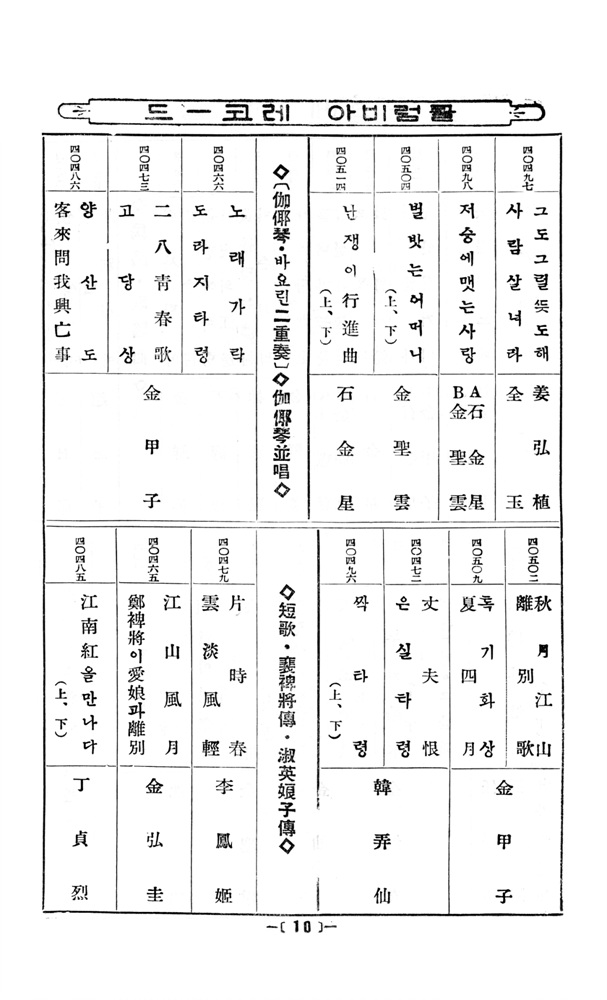 콜럼비아 레코ー드
四〇四九七
그도그럴뜻도해
사람살녀라
姜弘植
全玉
四〇四九八
저승에맷는사랑
A石金星
B金聖雲
四〇五〇四
벌밧는어머니
(上、下)
金聖雲
四〇五一四
난쟁이行進曲
(上、下)
石金星
◇〔伽倻琴・바요린二重奏〕◇伽倻琴並唱◇
四〇四六六
노래가락
도라지타령
四〇四七三
二八青春歌
고당상
四〇四八六
양산도
客來問我興亡事
金甲子
四〇五〇二
秋月江山
離別歌
四〇五〇九
록기화상
夏四月
金甲子
四〇四七二
丈夫恨
은실타령
四〇四九六
짝타령
(上、下)
韓弄仙
◇短歌・裵裨將傳・淑英娘子傳◇
四〇四七九
片時春
雲淡風輕
李鳳姬
四〇四六五
江山風月
鄭裨將이愛娘과離別
金弘圭
四〇四八五
江南紅을만나다
(上、下)
丁貞烈
—〔10〕—